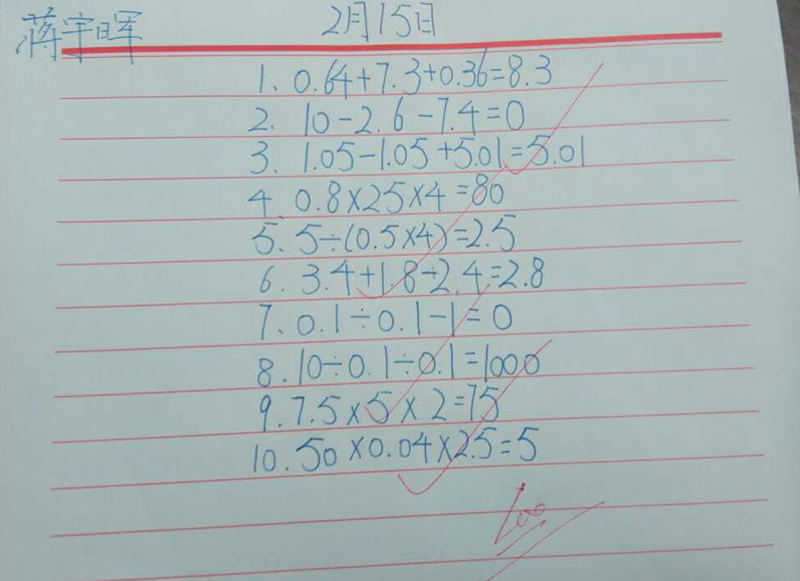 蒋宇晖 2月15日
1. 0.64+7.3+0.36=8.3
2. 10-2.6-7.4=0
3. 1.05-1.05+5.01=5.01
4. 0.8×25×4=80
5. 5÷(0.5×4)=2.5
6. 3.4+1.8-2.4=2.8
7. 0.1÷0.1-1=0
8. 10÷0.1÷0.1=1000
9. 7.5×5×2=75
10. 50×0.04×2.5=5
100